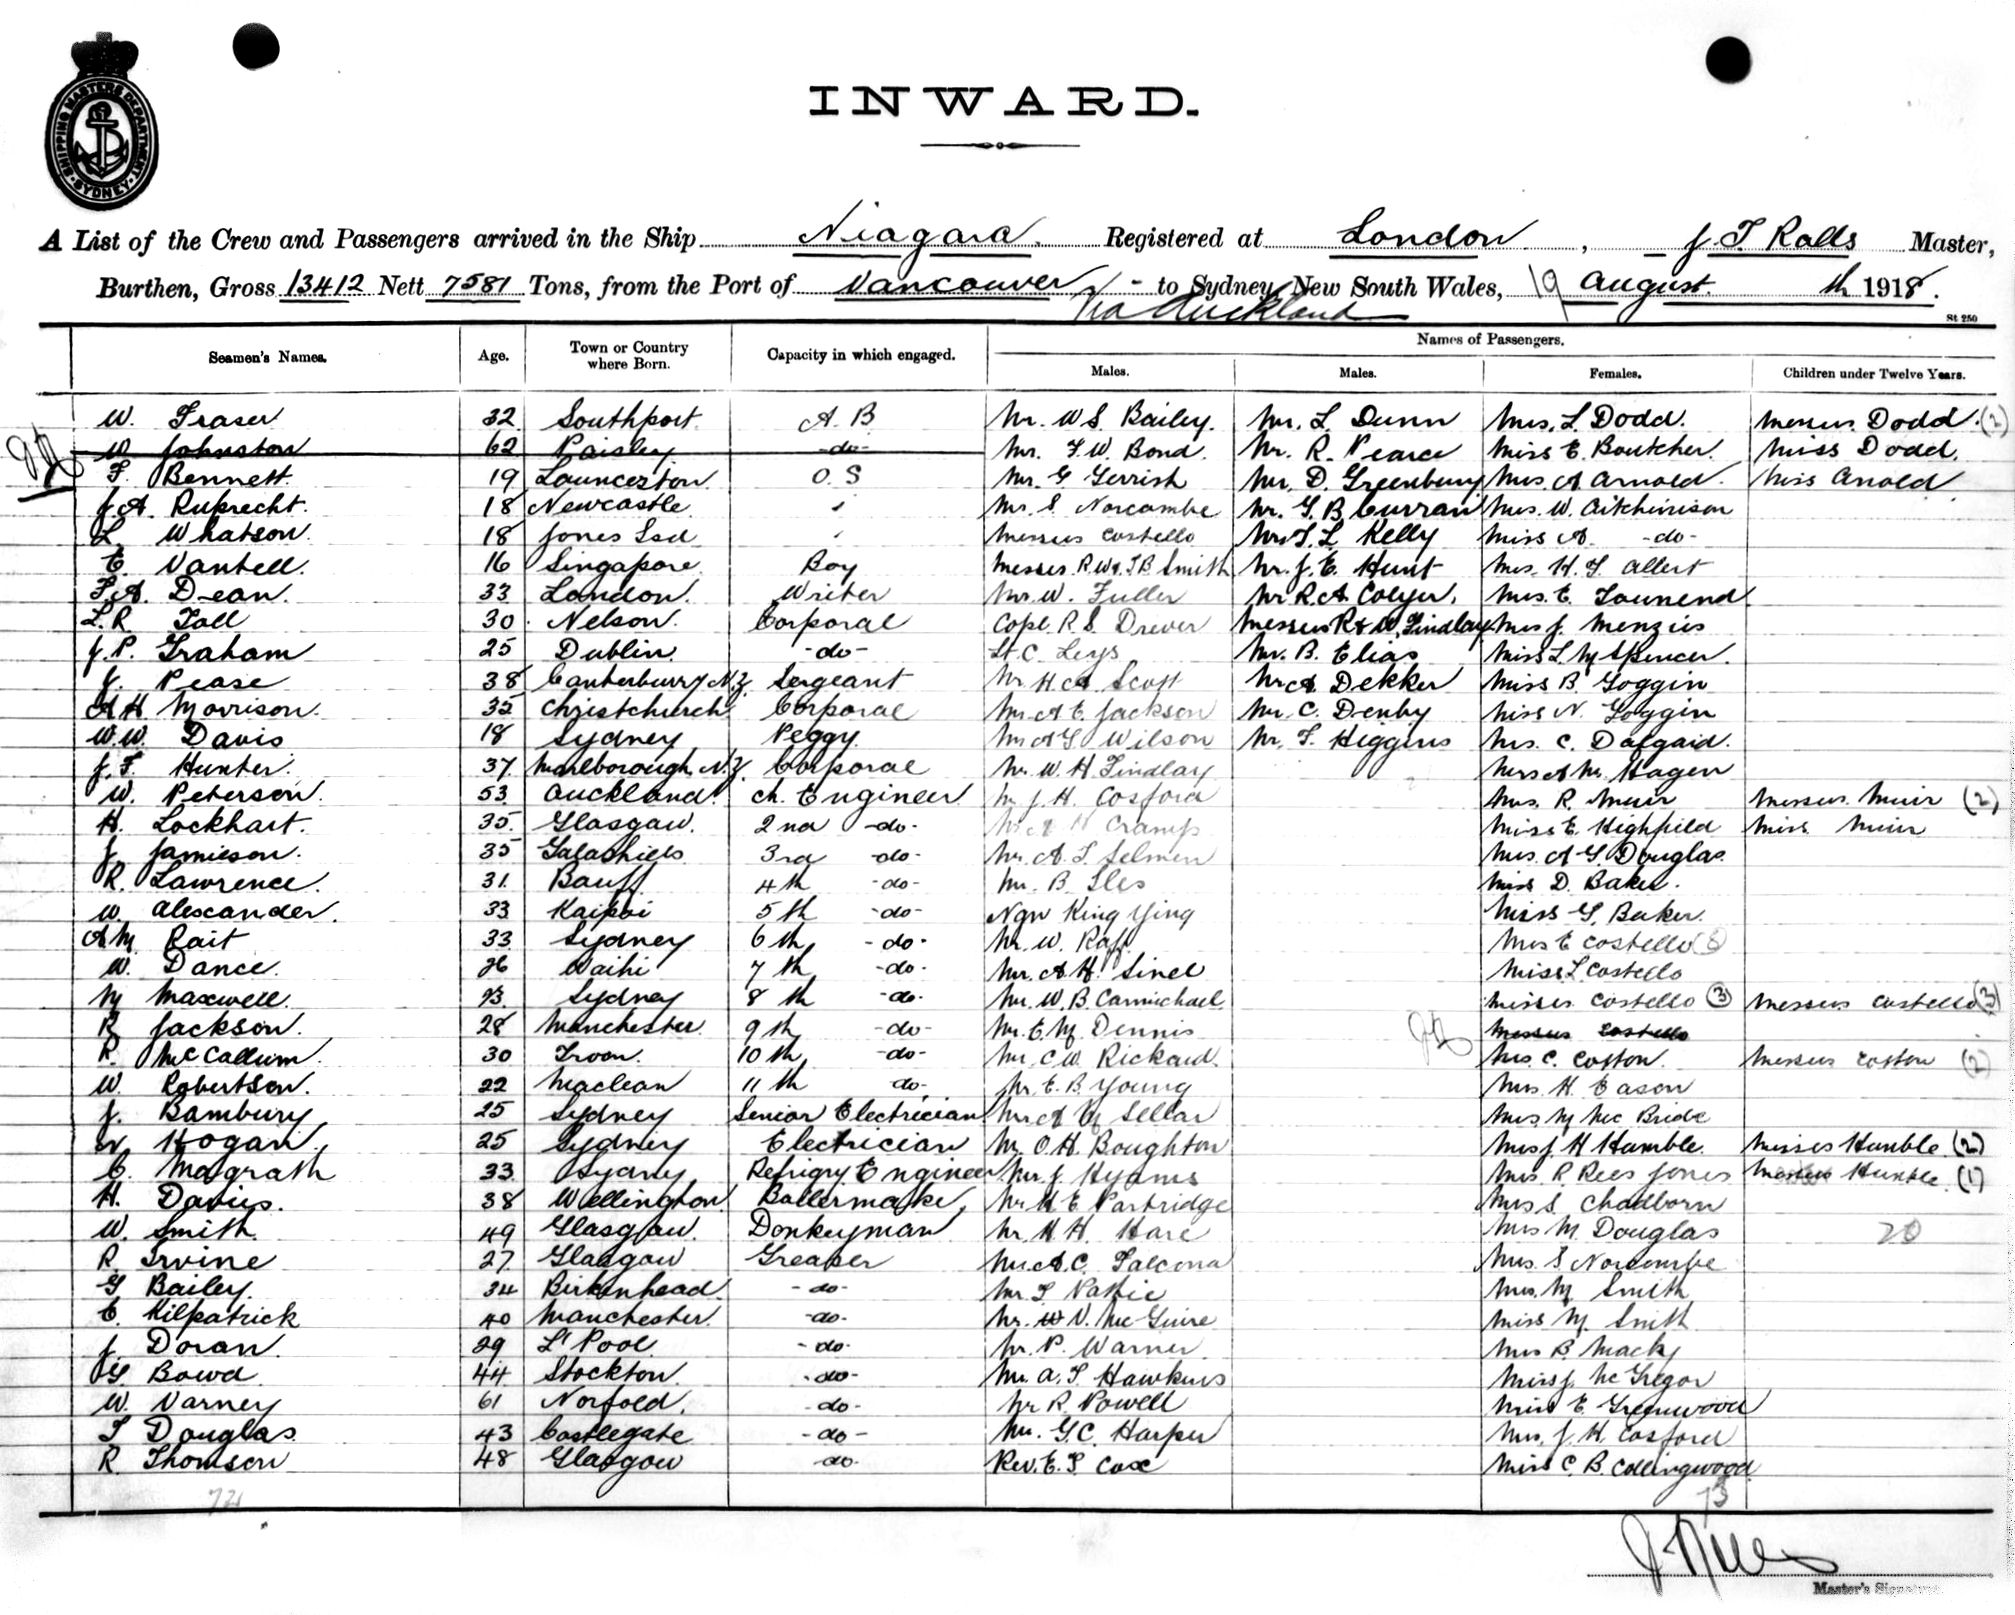 SHIPPING MASTERS DEPARTMENT SYDNEY
INWARD.
A List of the Crew and Passengers arrived in the Ship Niagara. Registered at London, J. T. Rolls Master,
Burthen, Gross 13412 Nett 7581 Tons, from the Port of Vancouver - to Sydney, New South Wales, 19 August th 1918.
Via Auckland
St 250
Seamen's Names. Age. Town or Country where Born. Capacity in which engaged. Names of Passengers.
Males. Males. Females. Children under Twelve Years.
W. Fraser 32 Southport A B Mr. W S Bailey. Mr. L Dunn Mrs. L Dodd. Messrs. Dodd. (2)
W Johnston 62 Paisley -do- Mr. F. W. Bond. Mr. R. Pearce Miss E. Boutcher. Miss Dodd.
F. Bennett 19 Launceston O. S Mr. G Gerrish Mr. D. Greenbury Mrs. A Arnold. Miss Anold
J. A. Ruprecht. 18 Newcastle Mr. S. Norcombe Mr. G. B Curran Mrs. W. Aitchinison
L. Whatson. 18 Jones Isd Messrs Costello Mr. L Kelly Miss A. -do-
E. Vantell. 16 Singapore. Boy Messrs. R. W & T B Smith Mr. J. E. Hunt Mrs. H. G. Allert
F. A. Dean. 33 London. Writer Mr. W. Fuller Mr R. A. Colyer. Mrs. E. Townend
L. R. Toll 30 Nelson. Corporal Capt. R. S. Drever Messrs R & W. Findlay Mrs J. Menzies
J. P. Graham 25 Dublin. -do- Lt. C. Leys Mr. B. Elias Miss L. M Spencer.
J. Pease 38 Canterbury N.Z. Sergeant Mr. H. A Scott Mr A Dekker Miss B. Goggin
A H Morrison. 35 Christchurch Corporal Mr. A E. Jackson Mr. C. Denby Miss N. Goggin
W. W. Davis 18 Sydney Peggy. Mr A G Wilson Mr. F. Higgins Mrs. C. Dalgaid.
J. F. Hunter. 37 Marlborough N.Z. Corporal Mr. W. H. Findlay Mrs A M. Hagen
W. Peterson. 53 Auckland. Ch. Engineer Mr J. H. Cosford Mrs. R. Muir Messrs. Muir (2)
H. Lockhart. 35 Glasgow. 2nd -do- Mr A H Cramp Miss E. Highfield Miss Muir
J. Jamieson. 35 Galashiels 3rd -do- Mr. A. L. Selmen Mrs. A G. Douglas
R. Lawrence. 31. Banff 4th -do- Mr. B. Iles Miss D. Baker.
W. Alexander. 33 Kaipoi 5th -do- Ngw King Ying Miss G. Baker.
A M Rait 33 Sydney 6th -do- Mr. W. Raff Mrs E Costello
W. Dance. 26 Waihi 7th -do- Mr. A. H. Sinel Miss L Costello
M Maxwell. 23 Sydney 8th -do- Mr. W. B. Carmichael Misses Costello (3) Messrs Costello (3)
R Jackson. 28 Manchester. 9th -do- Mr. E. M. Dennis Messrs Costello
R. McCallum. 30 Troon. 10th -do- Mr. C. W. Rickard. Mrs. C. Cotton. Messrs Cotton (2)
W. Robertson. 22 Maclean 11th do- Mr. E. B. Young Mrs. H. Eason
J. Bambury 25 Sydney Senior Electrician Mr A M Sellar Mrs. M Mc Bride
N Hogan. 25 Sydney Electrician Mr. O. H. Boughton Mrs J H Humble. Misses Humble (2)
C. Magrath 33 Sydney Refrigry Engineer Mr. J. Hyams Mrs. R. Rees Jones Humble. (1)
H. Davies. 38 Wellington Boilermaker Mr. H. E Partridge Mrs S Chadborn
W. Smith 49 Glasgow. Donkeyman Mr. H. H. Hare Mrs M. Douglas 20
R. Irvine 27. Glasgow Greaser Mr. A. C. Falcona Mrs. S Norcombe
G Bailey. 34 Birkenhead. -do- Mr. T Pattie Mrs. M Smith
C. Kilpatrick 40 Manchester. -do- Mr. W V. Mc Guire Miss M. Smith
J Doran. 29 L'Pool. -do- Mr. P. Warner. Mrs B. Macky
G. Bowd 44 Stockton. -do- Mr. A. T. Hawkins Miss J. Mc Gregor
W. Varney 61 Norfold. -do- Mr R. Powell Miss E. Greenwood
T Douglas. 43 Castlegate -do- Mr. G. C. Harper Mrs. J. H. Cosford
R. Thomson 48 Glasgow -do- Rev. E. T. Cox Miss C. B. Collingwood
72 73
Master's Signature